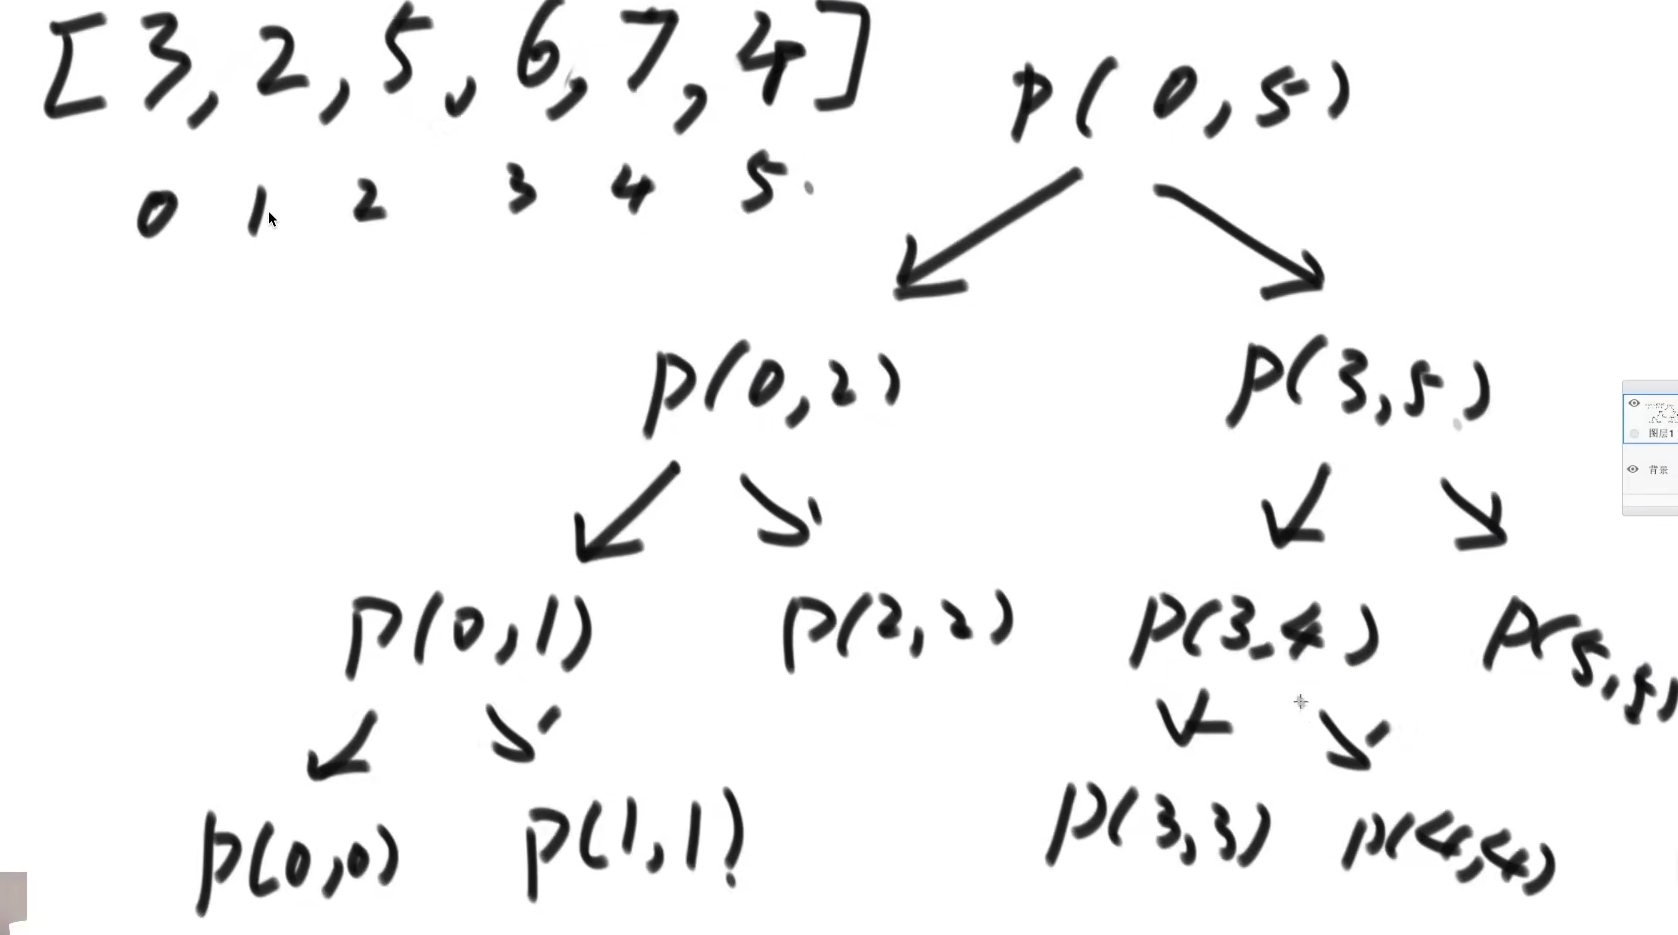 [3,2,5,6,7,4]
0 1 2 3 4 5
p(0,5)
p(0,2) p(3,5)
p(0,1) p(2,2) p(3.4) p(5,5)
p(0,0) p(1,1) p(3,3) p(4,4)
图层1
背景